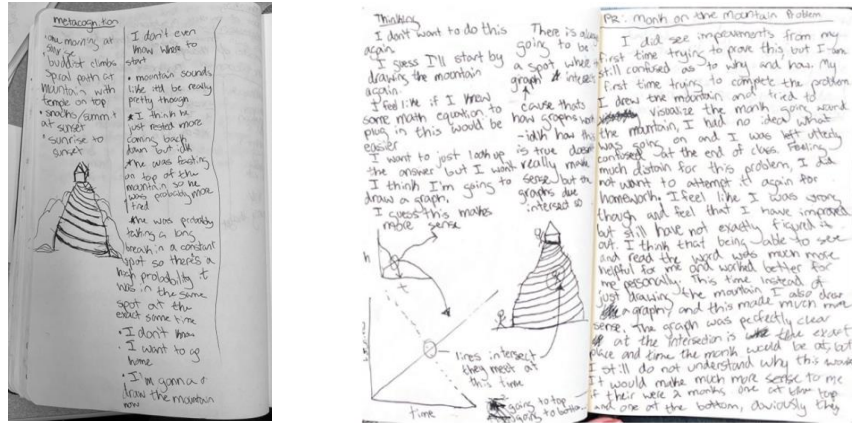 metacognition
• one morning at
sunrise
• buddist climbs
spiral path at
mountain with
temple on top
• snacks/summit
at sunset
• sunrise to
sunset
I don't even
know where to
start
• mountain sounds
like it'd be really
pretty though
• I think he
just rested more
coming back
down but idk
• he was fasting
on top of the
mountain so he
was probably more
tired
• he was probably
taking a long
break in a constant
spot so there's a
high probability t
was in the same
spot at the
exact same time
• I don't know
• I want to go
home
• I'm gonna
draw the mountain
now
Thinking
I don't want to do this
again.
I guess I'll start by
drawing the mountain
again.
I feel like if I knew
some math equation to
plug in this would be
easier
I want to just look up
the answer but I won't
I think I'm going to
draw a graph.
I guess this makes
more sense
There is always
going to be
a spot where
graph intersect
cause thats
how graphs work
-idk how this
is true doesn't
really make
sense but the
graphs due
intersect so
h
t
lines intersect
they meet at
this time
time
going to top
going to bottom
PR: Monk on the Mountain Problem
I did see improvements from my
first time trying to prove this but I am
still confused as to why and how. My
first time trying to complete the problem
I drew the mountain and tried to
visualize the monk going around
the mountain, I had no idea what
was going on and I was left utterly
confused at the end of class. Feeling
much distain for this problem, I did
not want to attempt it again for
homework. I feel like I was wrong
though and feel that I have improved
but still have not exactly figured it
out. I think that being able to see
and read the word was much more
helpful for me and worked better for
me personally. This time instead of
just drawing the mountain I also drew
a graph, and this made much more
sense. The graph was perfectly clear
at the intersection is the exact
place and time the monk would be at, but
I still do not understand why this would
It would make much more sense to me
if their were 2 monks one at the top
and one at the bottom, obviously they